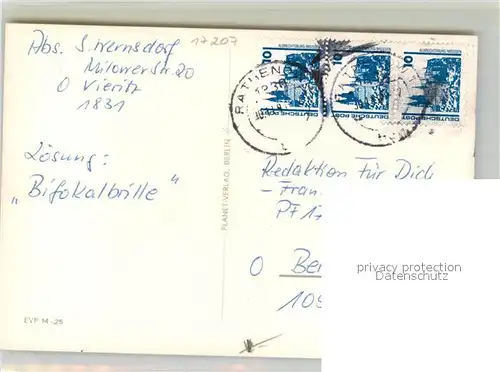 17207
Abs. S. Wernsdorf
Milowerstr. 20
O Vieritz
1831
Lösung:
"Bifokalbrille"
EVP M -.25
PLANET-VERLAG, BERLIN
RATHENO
10
10
10
DEUTSCHE POST
DEUTSCHE POST
DEUTSCHE POST
Redaktion Für Dich
- Fran
PF 17
O Be
10
privacy protection
Datenschutz